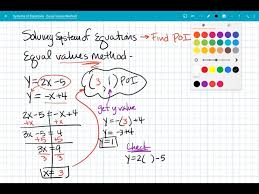 Systems of Equations - Equal Values Method
Solving System of Equations → Find POI
Equal values method -
y = 2x - 5
y = -x + 4
( 3, 1 ) POI
get y value
y = -(3) + 4
y = -3 + 4
y = 1
2x - 5 = -x + 4
+x +x
3x - 5 = 4
+5 +5
3x = 9
3 3
x = 3
Check
y = 2( ) - 5